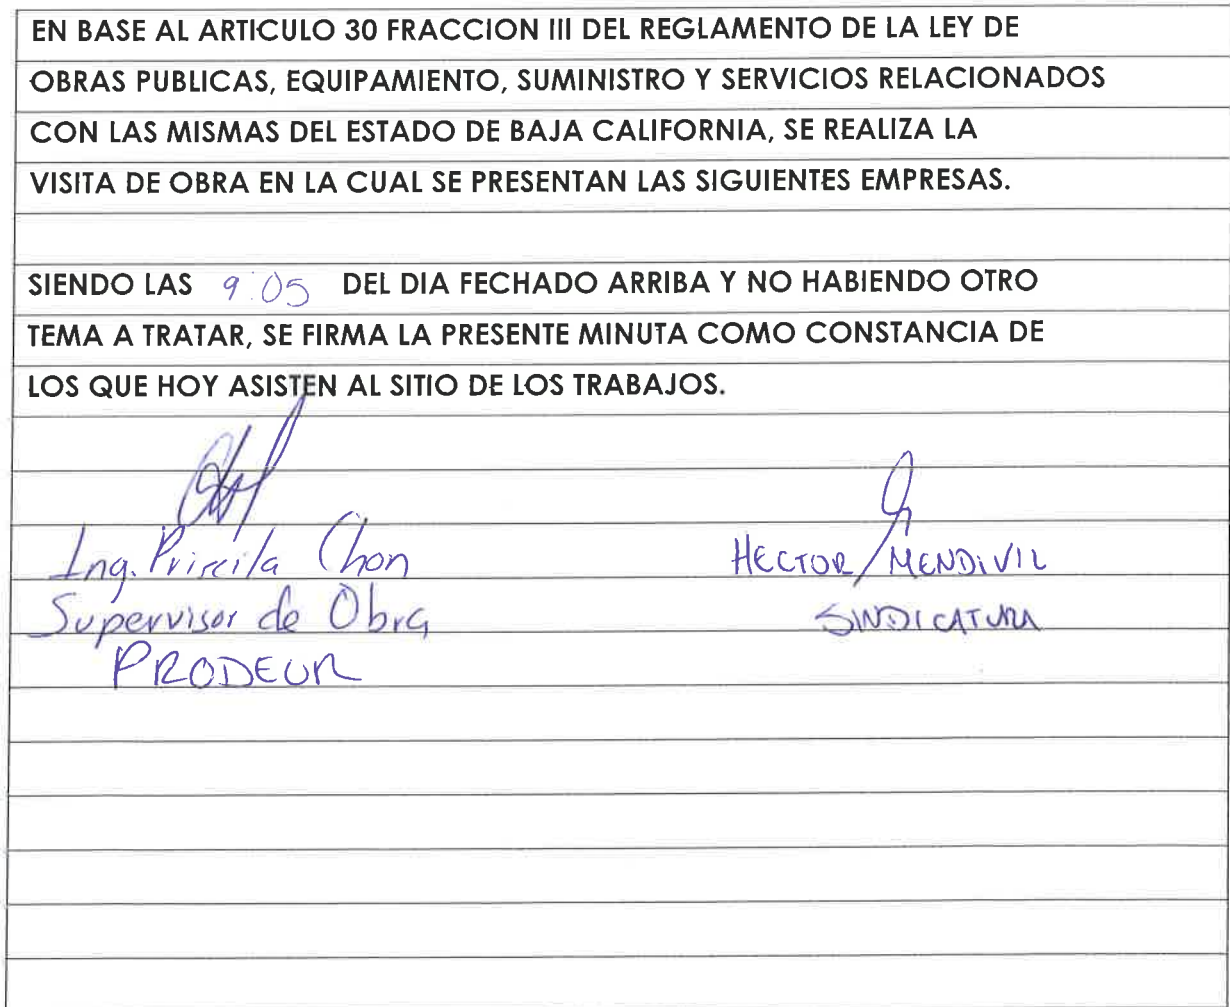 EN BASE AL ARTICULO 30 FRACCION III DEL REGLAMENTO DE LA LEY DE
OBRAS PUBLICAS, EQUIPAMIENTO, SUMINISTRO Y SERVICIOS RELACIONADOS
CON LAS MISMAS DEL ESTADO DE BAJA CALIFORNIA, SE REALIZA LA
VISITA DE OBRA EN LA CUAL SE PRESENTAN LAS SIGUIENTES EMPRESAS.
SIENDO LAS 9:05 DEL DIA FECHADO ARRIBA Y NO HABIENDO OTRO
TEMA A TRATAR, SE FIRMA LA PRESENTE MINUTA COMO CONSTANCIA DE
LOS QUE HOY ASISTEN AL SITIO DE LOS TRABAJOS.
Ing. Priscila Chon
Supervisor de Obra
PRODEUR
HECTOR MENDIVIL
SINDICATURA